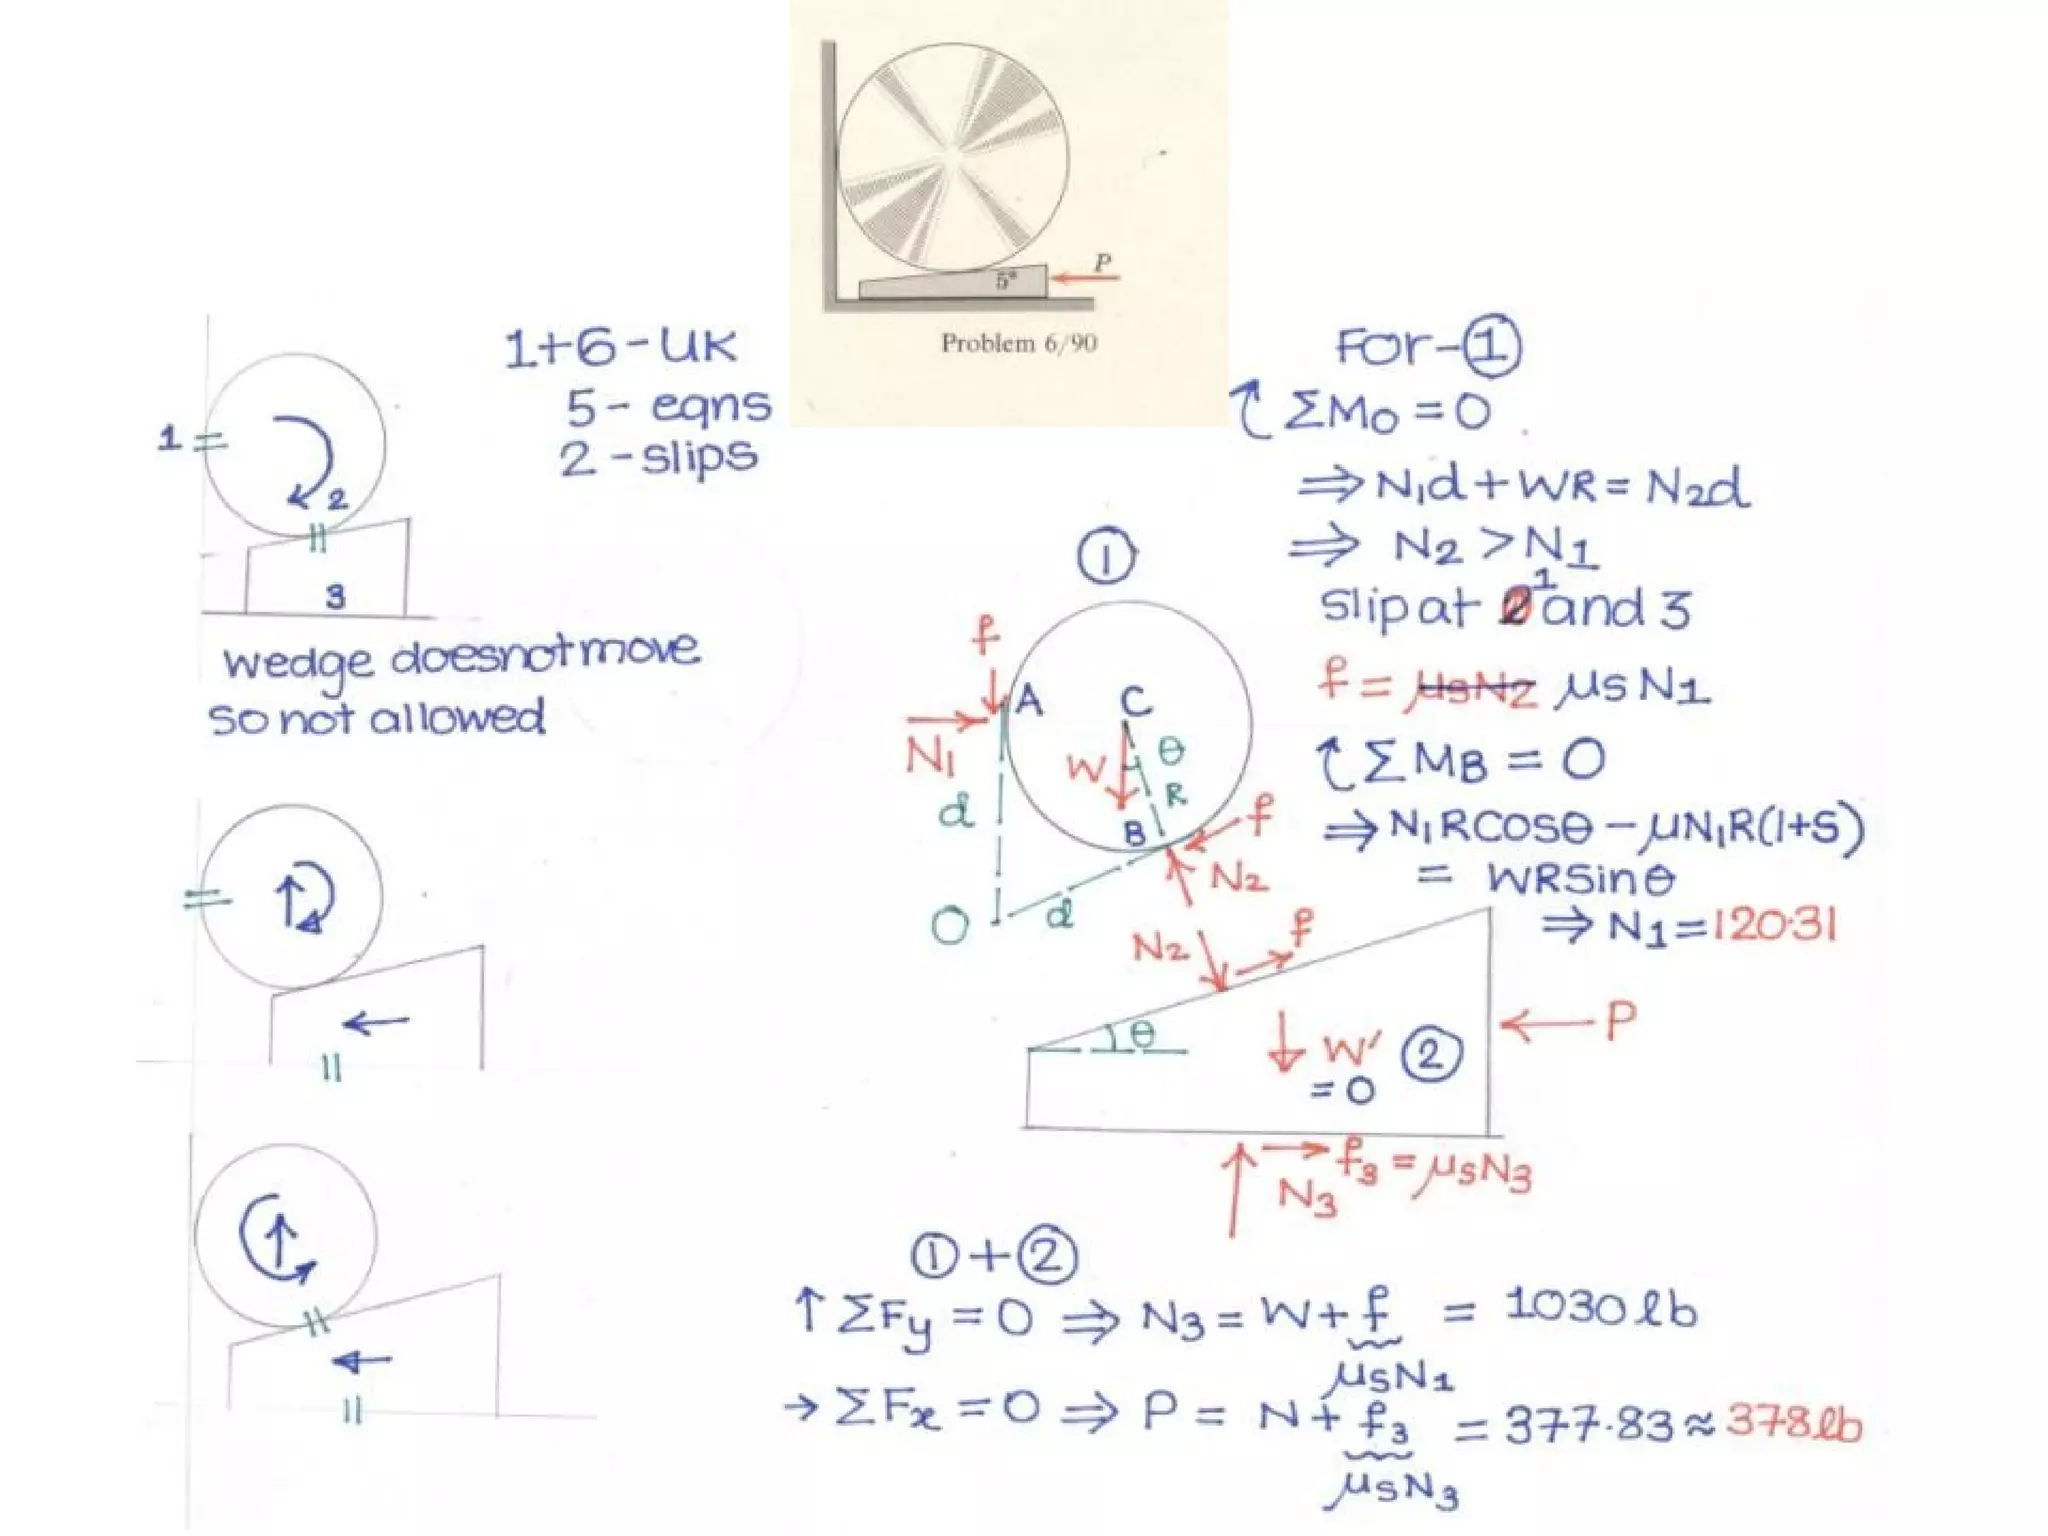 P
5°
Problem 6/90
1+6-UK
5- eqns
2-slips
1
2
3
wedge doesnot move
so not allowed
For-①
ΣMO = 0
⇒ N1d + WR = N2d
⇒ N2 > N1
slip at 1 and 3
f = μsN2 μsN1
ΣMB = 0
⇒ N1RCosθ - μN1R(1+S)
= WRSinθ
⇒ N1 = 120.31
①
f
A
C
N1
W
θ
R
d
B
f
N2
O
d
N2
f
θ
W'
= 0
②
P
f3 = μsN3
N3
① + ②
↑ ΣFy = 0 ⇒ N3 = W + f = 1030 lb
μsN1
→ ΣFx = 0 ⇒ P = N + f3 = 377.83 ≈ 378 lb
μsN3